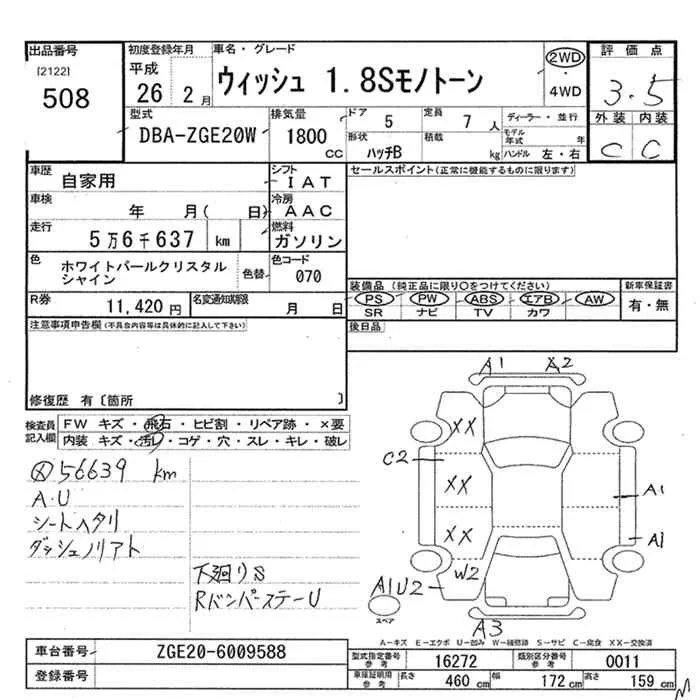 出品番号 初度登録年月 車名・グレード 2WD 評価点
[2122] 平成 4WD
508 26 2月 ウィッシュ 1.8Sモノトーン 3.5
型式 排気量 ドア 5 定員 7人 ディーラー・並行 外装 内装
DBA-ZGE20W 1800cc 形状 ハッチB 積載 kg モデル年式 年 C C
ハンドル 左・右
車歴 自家用 シフト IAT セールスポイント(正常に機能するものに限ります)
車検 年 月( 日) 冷房 AAC
走行 5万6千637 km 燃料 ガソリン
色 ホワイトパールクリスタルシャイン 色替 色コード 070
装備品(純正品に限り○をつけてください) 新車保証書
R券 11,420円 名変通知期限 月 日 PS PW ABS エアB AW 有・無
SR ナビ TV カワ
注意事項申告欄(不具合内容等は具体的に記入して下さい) 後日品
修復歴 有〔箇所 〕
検査員記入欄 FW キズ・飛石・ヒビ割・リペア跡・×要
内装 キズ・汚れ・コゲ・穴・スレ・キレ・破レ
A1 A2
XX
C2 XX A1
XX A1
W2
A1U2
スペア
A3
56639 km
A・U
シートヘタリ
ダッシュノリアト
下廻りS
RバンパーステーU
A−キズ E−エクボ U−凹み W−補修跡 S−サビ C−腐食 XX−交換済
車台番号 ZGE20-6009588 型式指定番号 参考 16272 類別区分番号 参考 0011
登録番号 車庫証明用 参考 長さ 460cm 幅 172cm 高さ 159cm